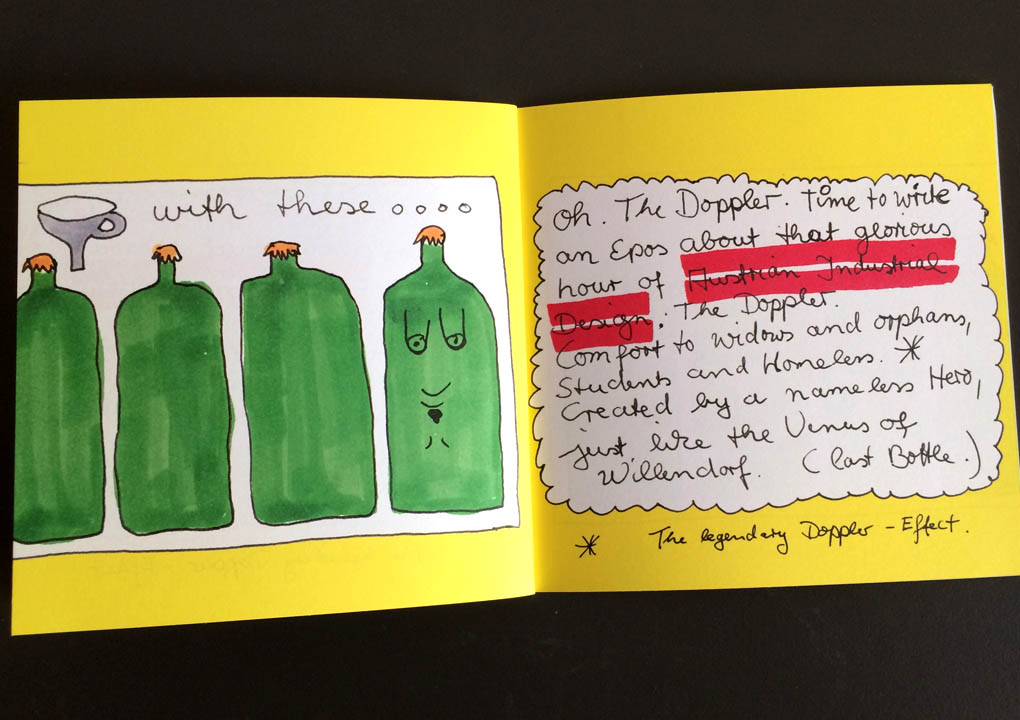 with these oooo
Oh. The Doppler. Time to write
an Epos about that glorious
hour of Austrian Industrial
Design. The Doppler.
Comfort to widows and orphans,
Students and Homeless. *
Created by a nameless Hero,
just like the Venus of
Willendorf. (last Bottle.)
* The legendary Doppler - Effect.